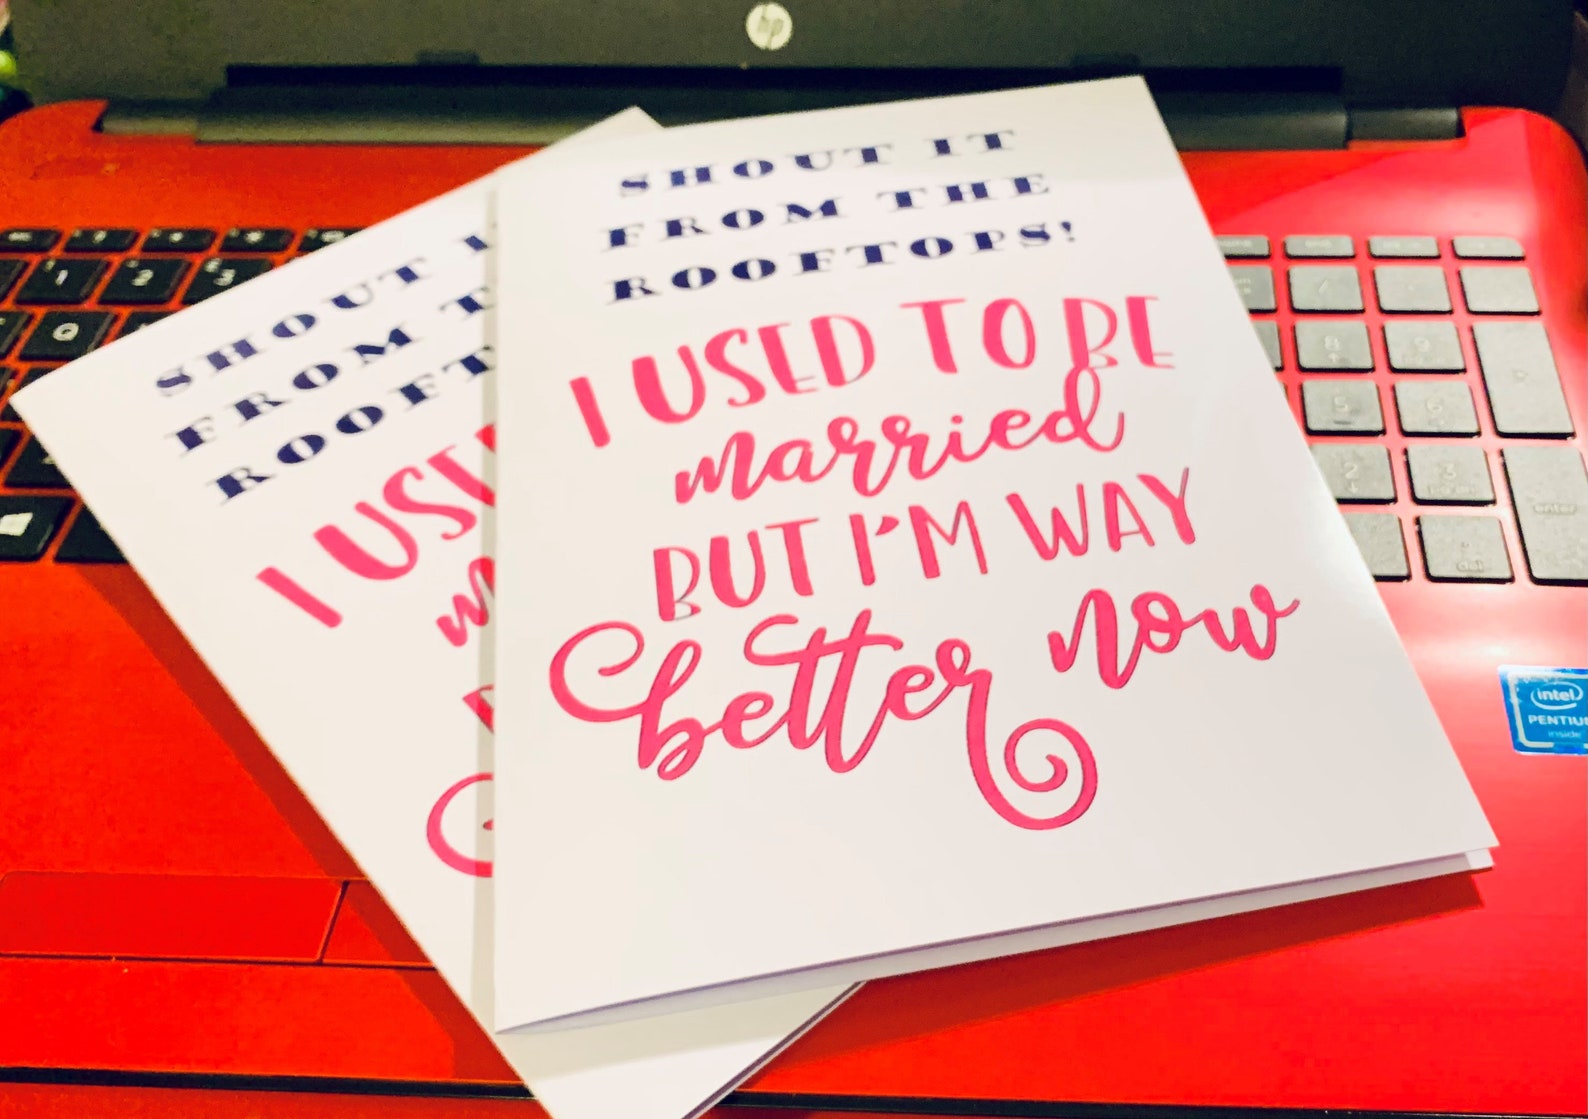 hp
SHOUT IT
FROM THE
ROOFTOPS!
I USED TO BE
married
BUT I'M WAY
better now
SHOUT I
FROM T
ROOFT
I USE
1
2
£
3
Q
8
9
5
6
2
3
enter
del
intel
PENTIU
inside